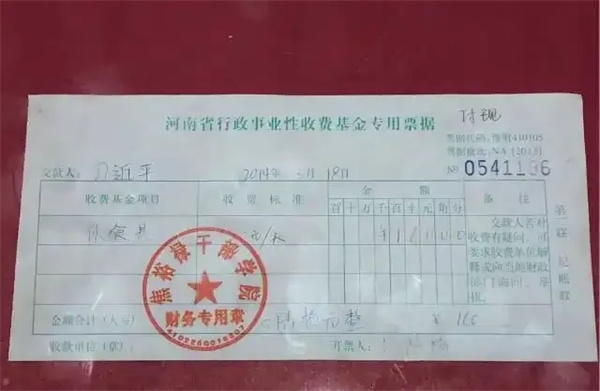 河南省行政事业性收费基金专用票据
付现
票据代码:豫财410105
票据批次:NA[2013]
№ 0541136
交款人: 习近平 2014年 3月18日
收费基金项目 收费标准 金额 备注
百十万千百十元角分
伙食费 元/天
交款人若对
收费有疑问,可
要求收费单位解
释或向当地财政
部门询问、举
报。
第一联
记账联
焦裕禄干部学院
财务专用章
金额合计(大写) 陆拾元整 ¥ 160
收款单位(章): 开票人: